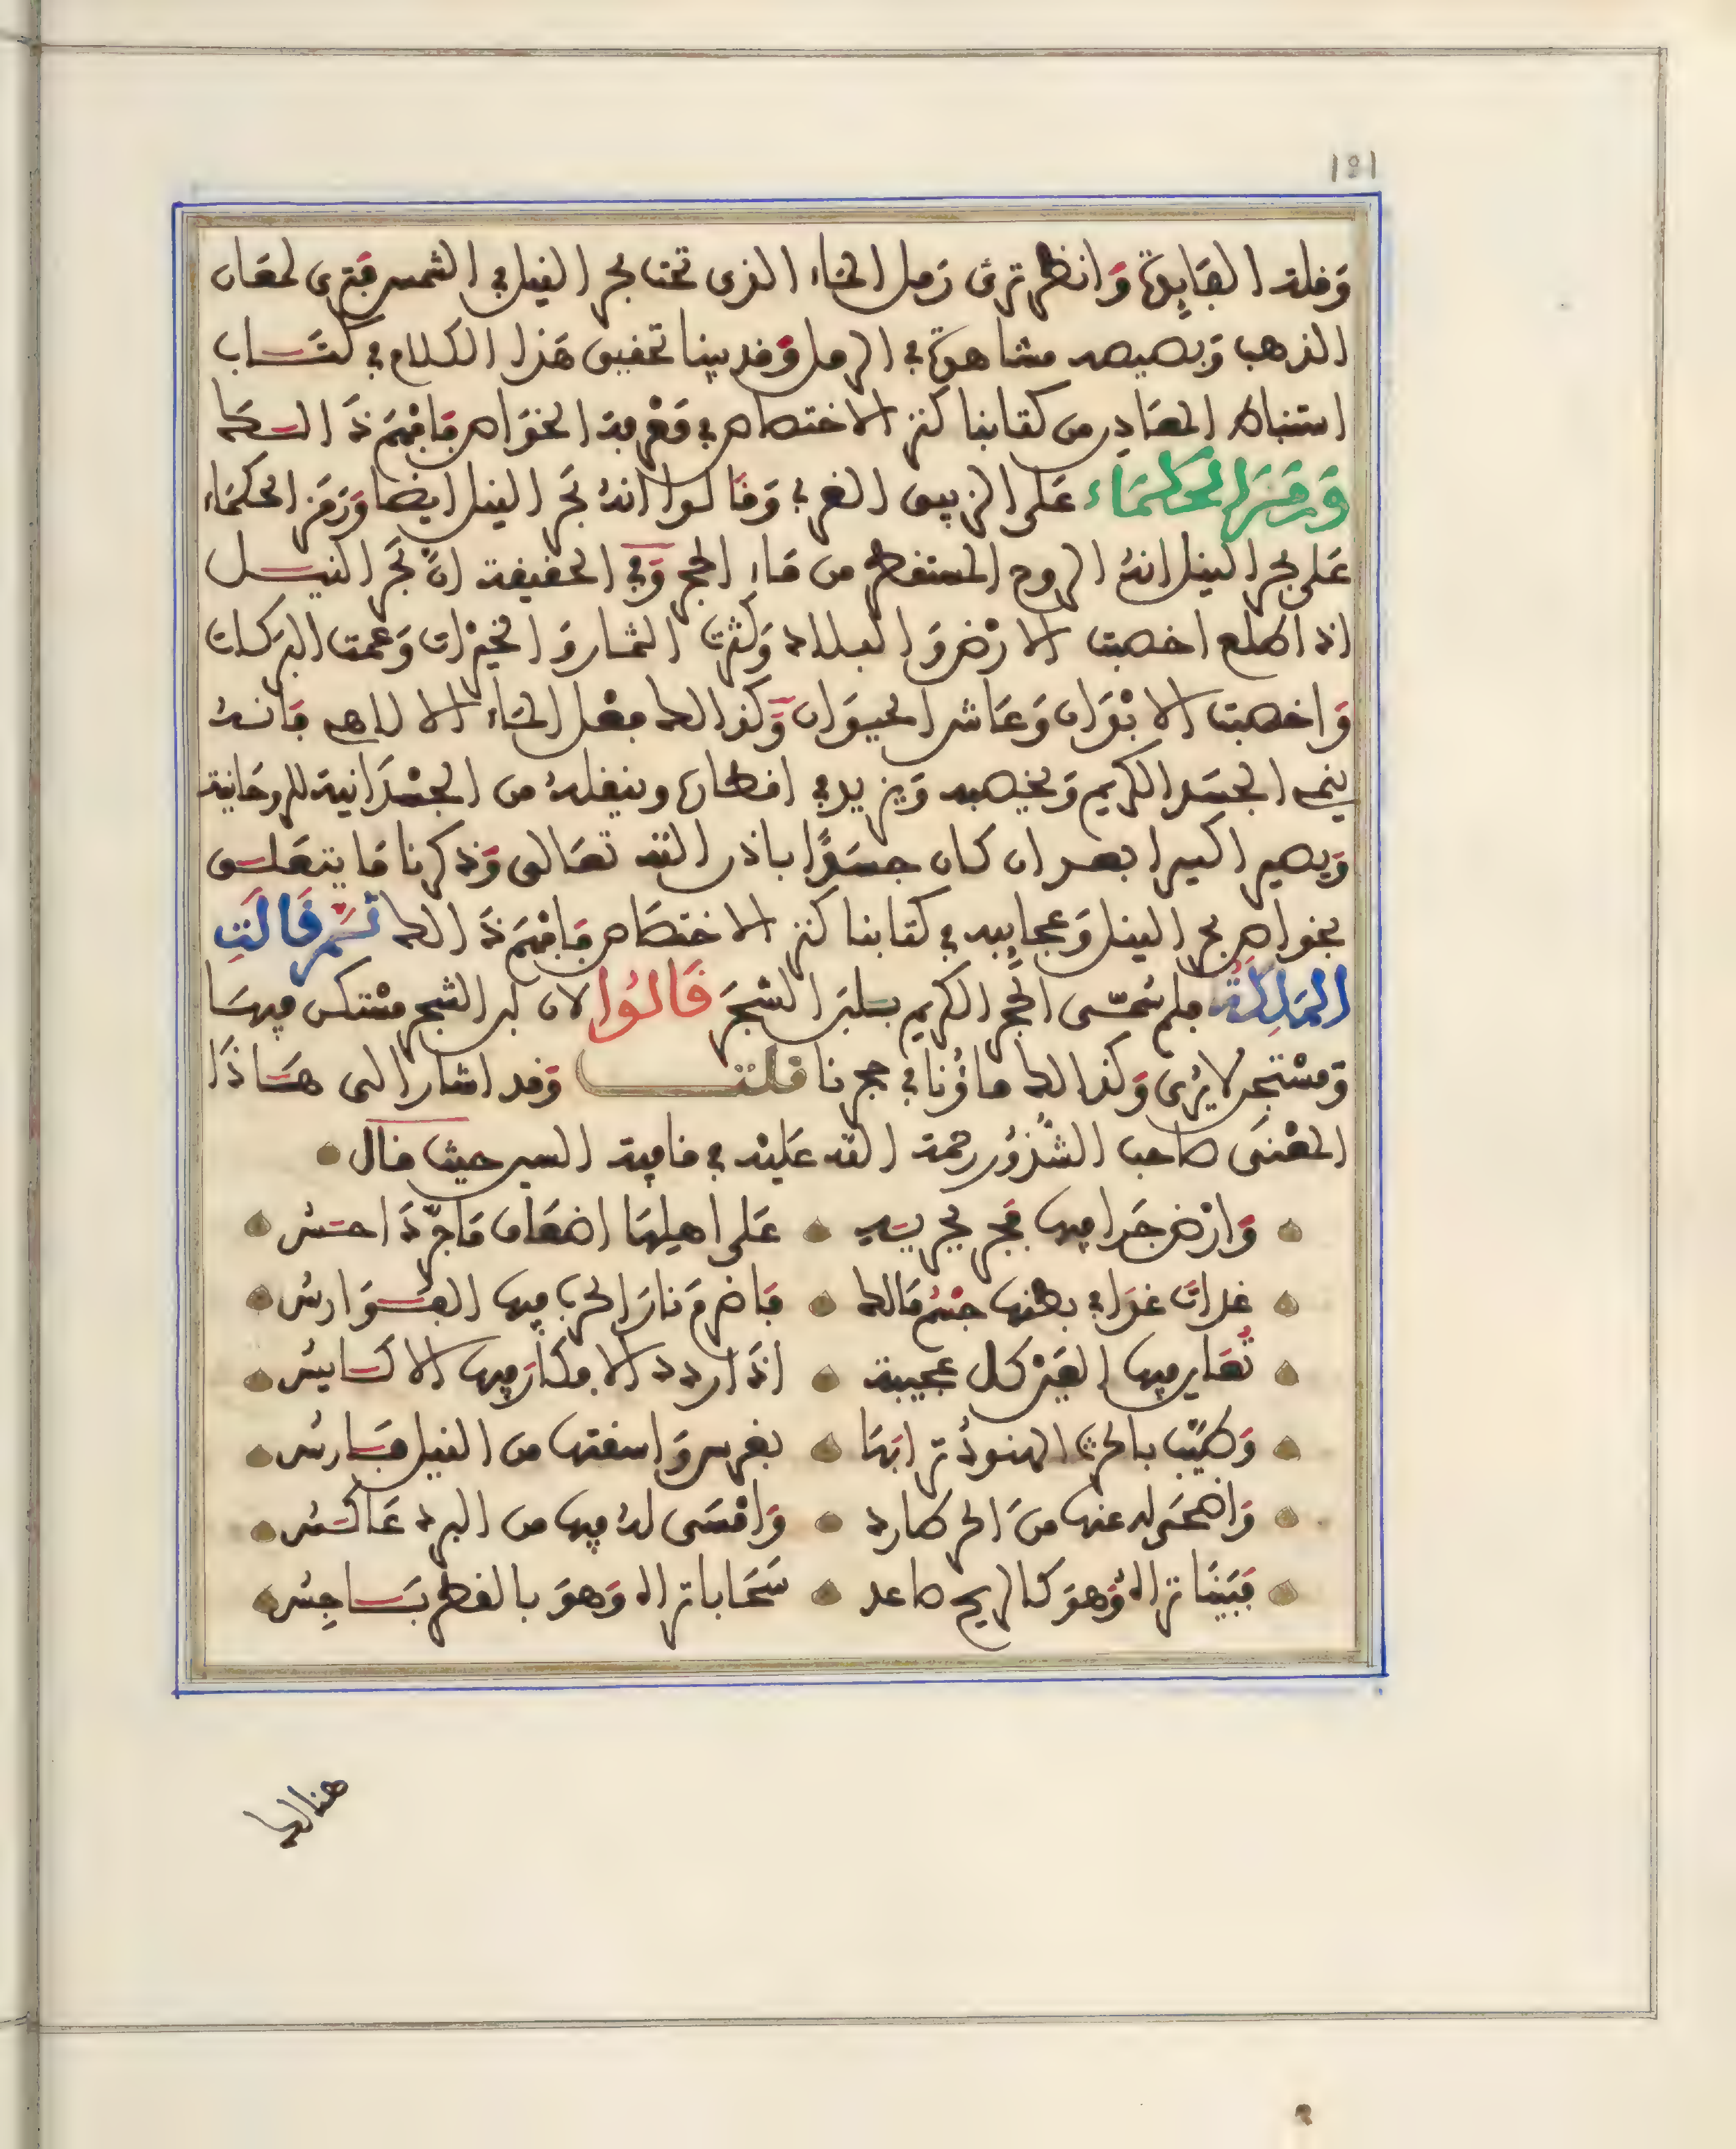 181
وقلة الفايدة وانظر ترى رمل الماء الذى تحت بحر النيل في الشمس فترى لمعان
الذهب وبصيصه مشاهدة في الرمل وقد بينا تحقيق هذا الكلام في كتاب
استنباط المعادن من كتابنا كنز الاختصاص في معرفة الخواص فافهم ذالك
ورمز الحكماء على الزيبق الغربي وقالوا انه بحر النيل ايضا ورمز الحكماء
على بحر النيل انه الروح المستقطر من ماء الحجر وفي الحقيقة ان بحر النيل
اذا طلع اخصبت الارض والبلاد وكثرت الثمار والخيرات وعمت البركات
واخصبت الابوان وعاش الحيوان وكذالك فعل الماء الالاهي فانه
ينمي الجسد الكريم ويخصبه ويزيد في اقطاره وينقله من الجسدانية للروحانية
ويصير اكسيرا بعد ان كان جسدا باذن الله تعالى وذكرنا ما يتعلق
بخواص بحر النيل وعجايبه في كتابنا كنز الاختصاص فافهم ذالك ثم قالت
الملكة فلم سمي الحجر الكريم بلبن الشجر قالوا لان لبن الشجر مستكن فيها
ومستجن لا يرى وكذالك ماؤنا في حجرنا قلت وقد اشار الى هاذا
المعنى صاحب الشذور رحمة الله عليه في قافية السين حيث قال
وارض جرا فيها بحر يسير على اهلها اضعاف ماجر ذا احس
غدات غوا في بطنها جسم مالك فاضرم نار الحرب فيها الفوارس
تعاين فيها العين كل عجيبة اذا ردد الافكار فيها الاكايس
وطيب بالحرث الهنود ترابها بغرس واسقتها من النيل فارس
واضحى له عنها من الحر طارد وامسى له فيها من البرد عاكس
فبينا تراه وهو كالريح صاعد سحابا تراه وهو بالقطر باجس
هنالك